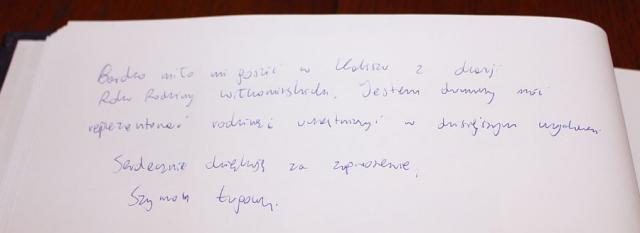 Bardzo miło mi gościć w Kaliszu z okazji
Roku Rodziny Wiłkomirskich. Jestem dumny móc
reprezentować rodzinę i uczestniczyć w dzisiejszym wydarzeniu
Serdecznie dziękuję za zaproszenie,
Szymon